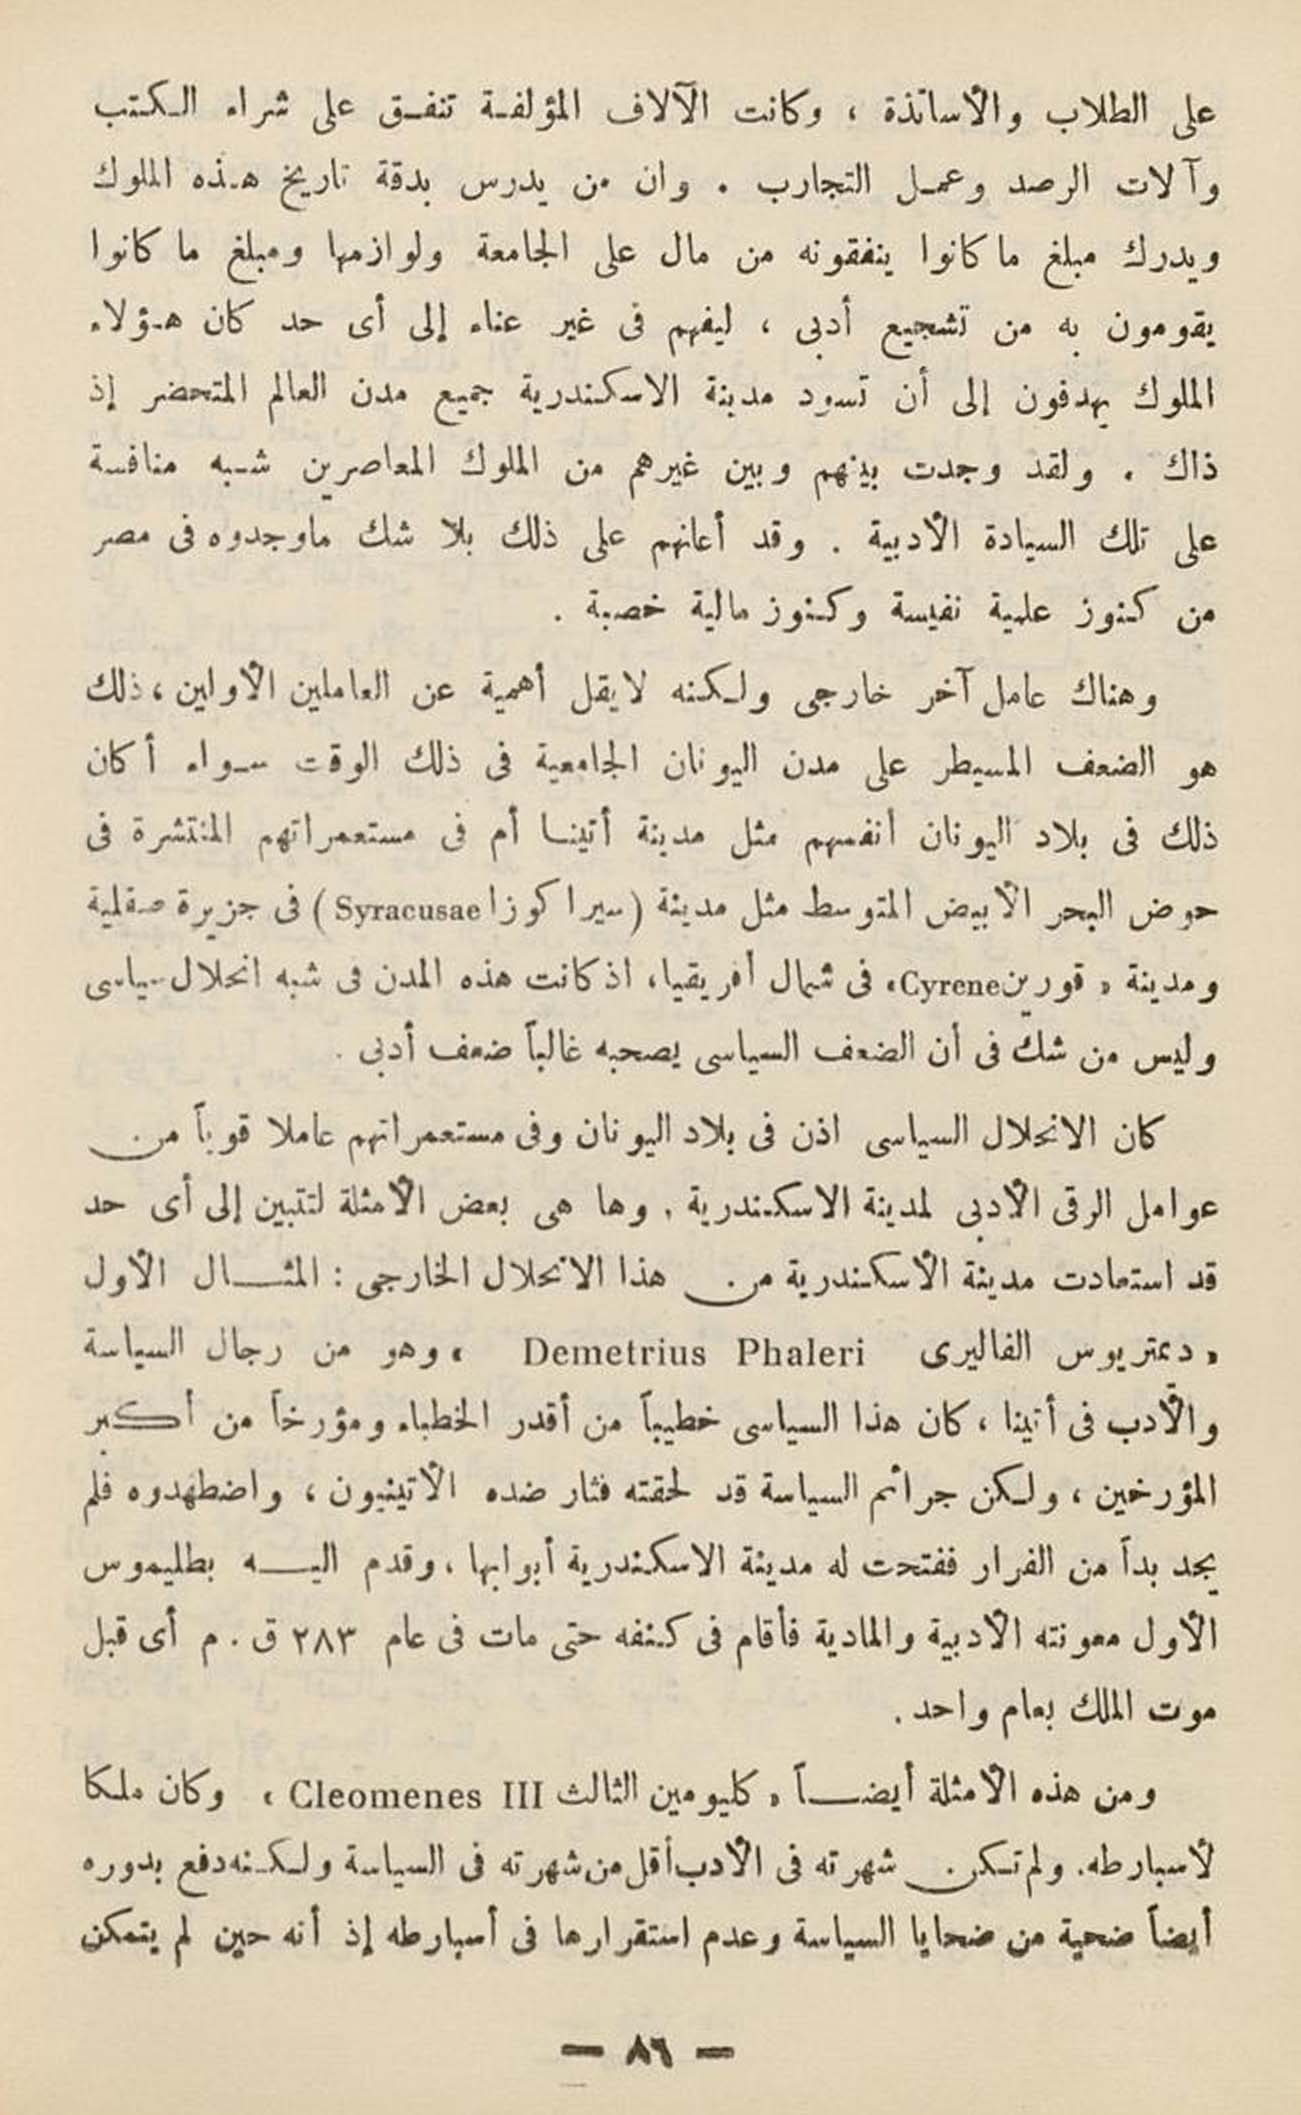 على الطلاب والأساتذة ، وكانت الآلاف المؤلفة تنفق على شراء الكتب
وآلات الرصد وعمل التجارب . وان من يدرس بدقة تاريخ هذه الملوك
ويدرك مبلغ ما كانوا ينفقونه من مال على الجامعة ولوازمها ومبلغ ما كانوا
يقومون به من تشجيع أدبى ، ليفهم فى غير عناء إلى أى حد كان هؤلاء
الملوك يهدفون إلى أن تسود مدينة الاسكندرية جميع مدن العالم المتحضر إذ
ذاك . ولقد وجدت بينهم وبين غيرهم من الملوك المعاصرين شبه منافسة
على تلك السيادة الأدبية . وقد أعانهم على ذلك بلا شك ماوجدوه فى مصر
من كنوز علمية نفيسة وكنوز مالية خصبة .
وهناك عامل آخر خارجى ولكنه لا يقل أهمية عن العاملين الأولين ، ذلك
هو الضعف المسيطر على مدن اليونان الجامعية فى ذلك الوقت سواء أكان
ذلك فى بلاد اليونان أنفسهم مثل مدينة أتينا أم فى مستعمراتهم المنتشرة فى
حوض البحر الأبيض المتوسط مثل مدينة (سيراكوزا Syracusae) فى جزيرة صقلية
ومدينة « قورين Cyrene» فى شمال أفريقيا، اذ كانت هذه المدن فى شبه انحلال سياسى
وليس من شك فى أن الضعف السياسى يصحبه غالباً ضعف أدبى .
كان الانحلال السياسى اذن فى بلاد اليونان وفى مستعمراتهم عاملا قوياً من
عوامل الرقى الأدبى لمدينة الاسكندرية . وها هى بعض الأمثلة لتتبين إلى أى حد
قد استعادت مدينة الأسكندرية من هذا الانحلال الخارجى : المثال الأول
« دمتريوس الفاليرى Demetrius Phaleri » وهو من رجال السياسة
والأدب فى أتينا ، كان هذا السياسى خطيباً من أقدر الخطباء ومؤرخاً من أكبر
المؤرخين ، ولكن جرائم السياسة قد لحقته فثار ضده الأتينيون ، واضطهدوه فلم
يجد بداً من الفرار ففتحت له مدينة الاسكندرية أبوابها ، وقدم اليه بطليموس
الأول معونته الأدبية والمادية فأقام فى كنفه حتى مات فى عام ٢٨٣ ق . م أى قبل
موت الملك بعام واحد .
ومن هذه الأمثلة أيضاً « كليومين الثالث Cleomenes III » وكان ملكا
لأسبارطه . ولم تكن شهرته فى الأدب أقل من شهرته فى السياسة ولكنه دفع بدوره
أيضاً ضحية من ضحايا السياسة وعدم استقرارها فى أسبارطه إذ أنه حين لم يتمكن
— ٨٦ —